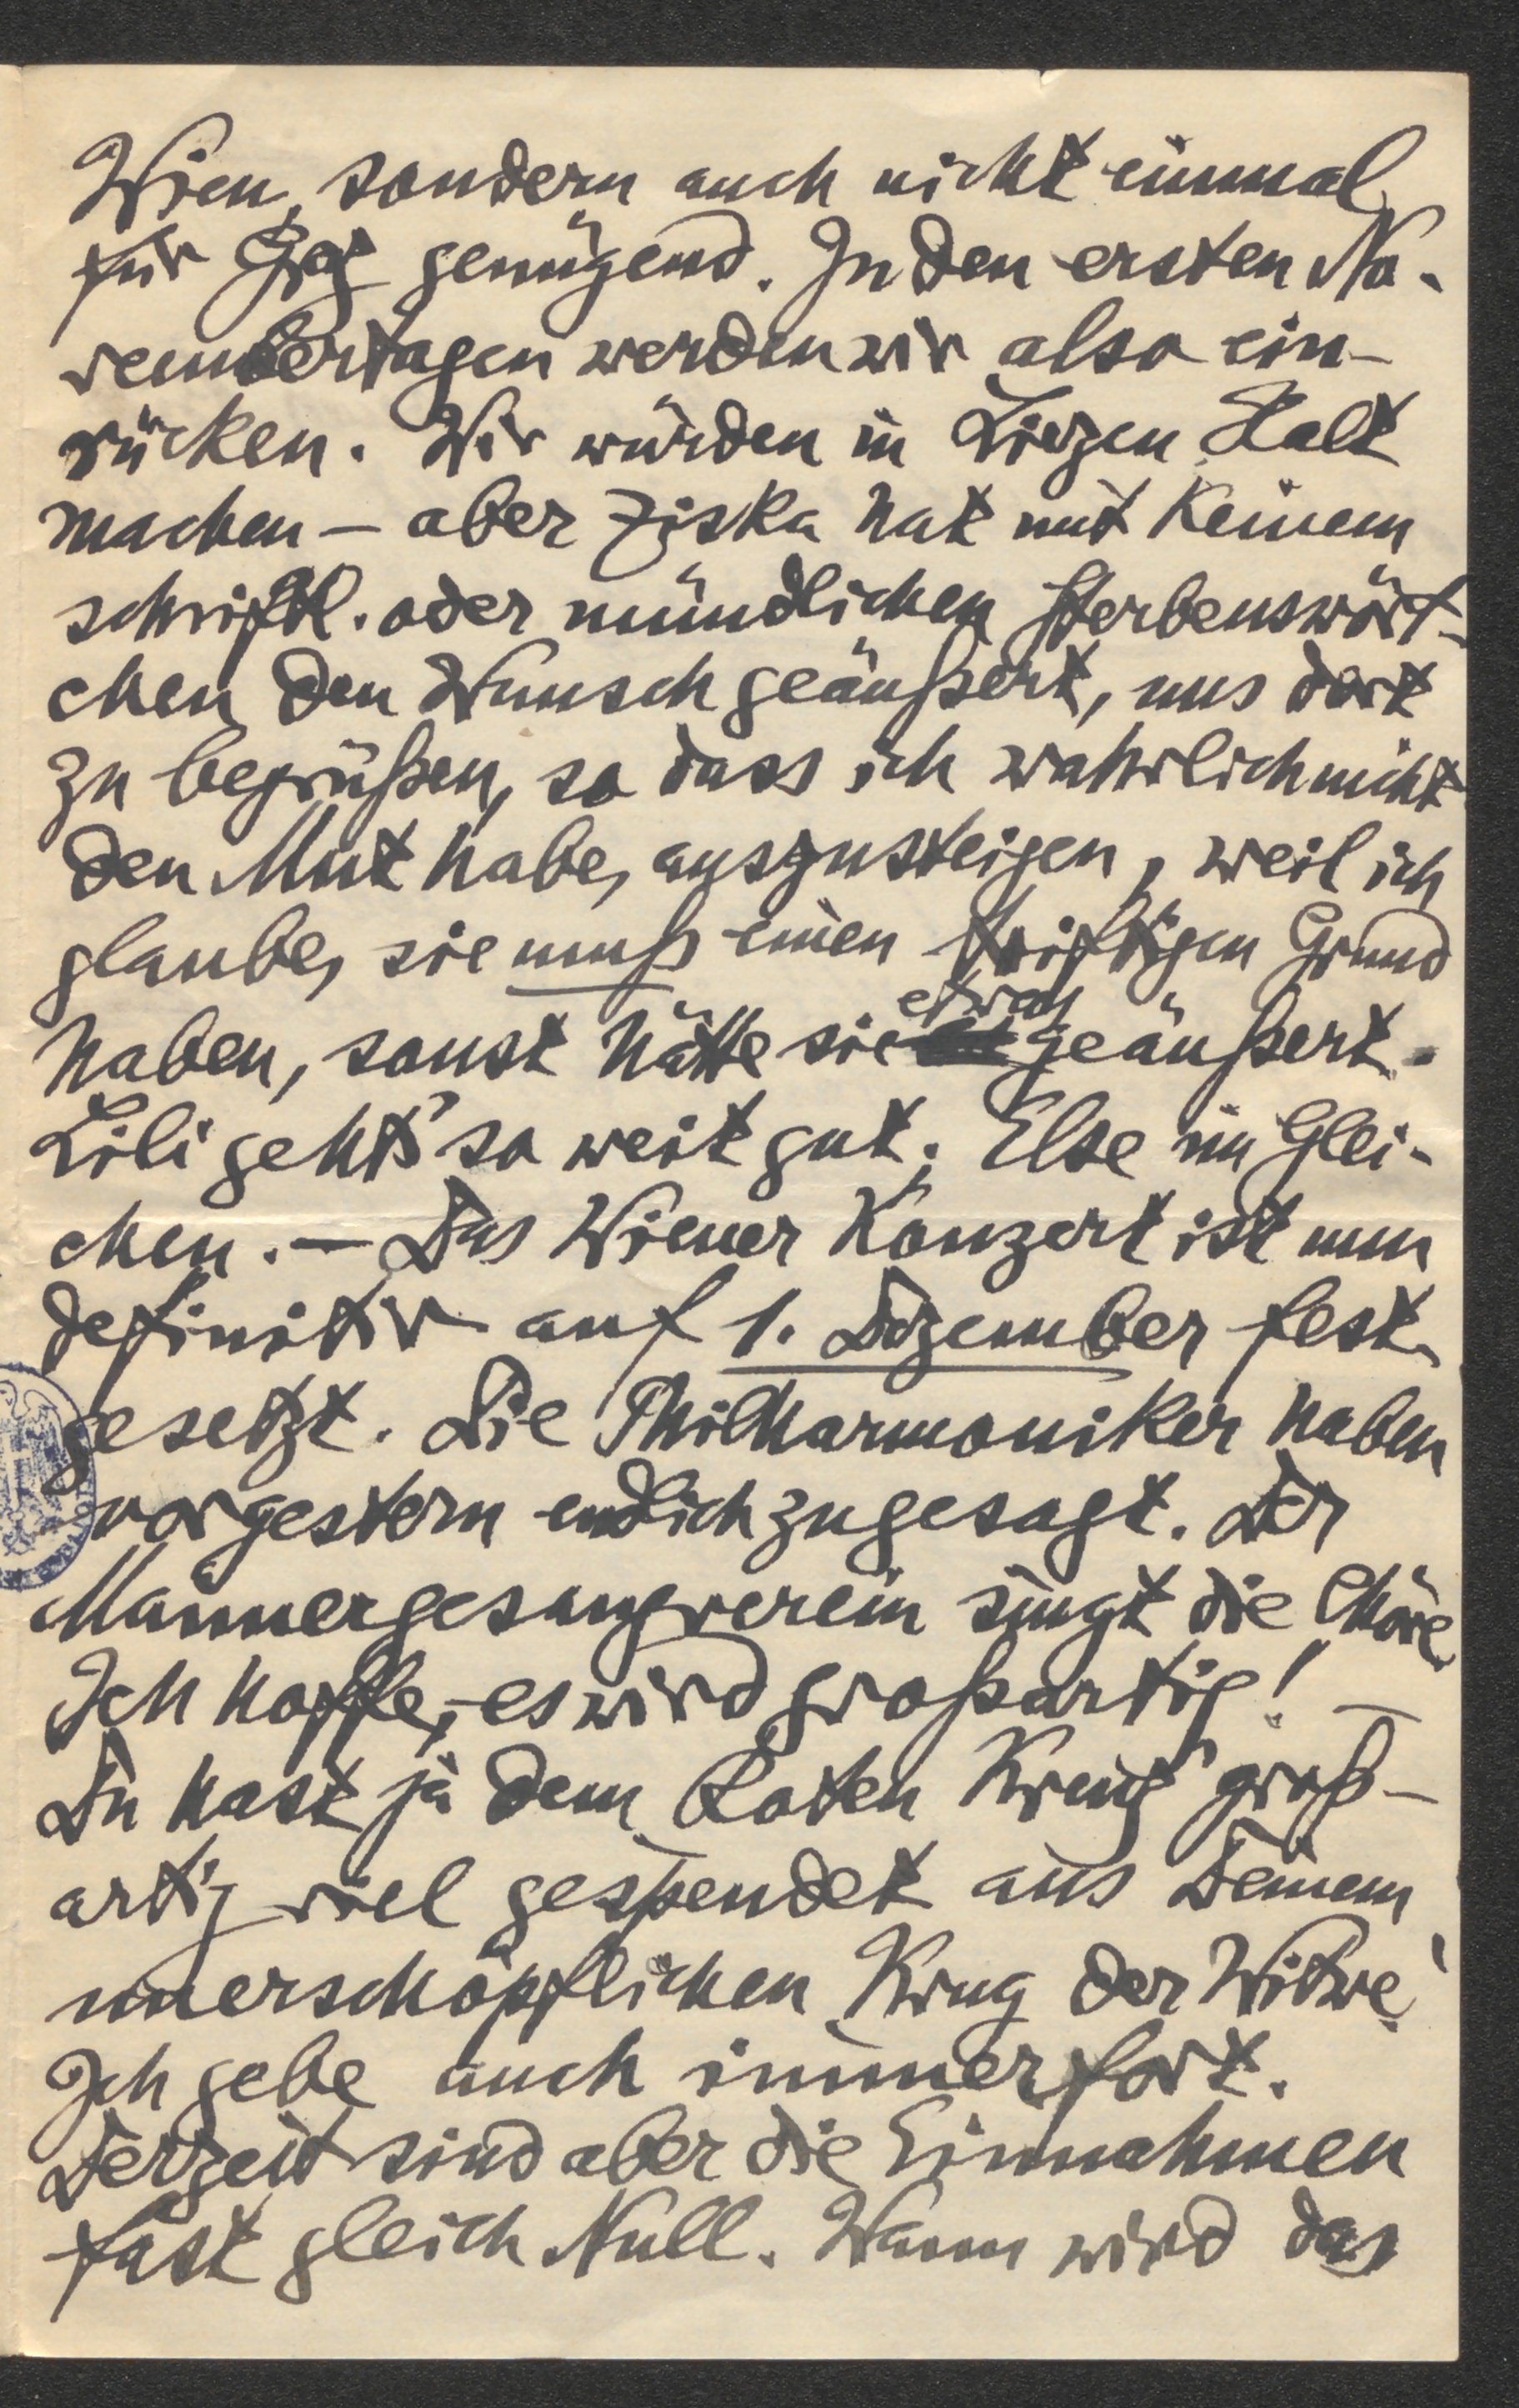 Wien, sondern auch nicht einmal
für Graz genügend. In den ersten No-
vembertagen werden wir also ein-
rücken. Wir würden in Liezen Halt
machen – aber Ziska hat mit keinem
schriftl. oder mündlichen Sterbenswört-
chen den Wunsch geäußert, uns dort
zu begrüßen, so dass ich wahrlich nicht
den Mut habe, auszusteigen, weil ich
glaube, sie muß einen triftigen Grund
haben, sonst hätte sie etwas geäußert.
Lili geht's so weit gut; Else im Glei-
chen. – Das Wiener Konzert ist nun
definitiv auf 1. Dezember fest-
gesetzt. Die Philharmoniker haben
vorgestern endlich zugesagt. Der
Männergesangverein singt die Chöre.
Ich hoffe, es wird großartig! –
Du hast ja dem Roten Kreuz groß-
artig viel gespendet aus Deinem
unerschöpflichen Krug der Witwe!
Ich gebe auch immerfort.
Derzeit sind aber die Einnahmen
fast gleich Null. Wann wird das